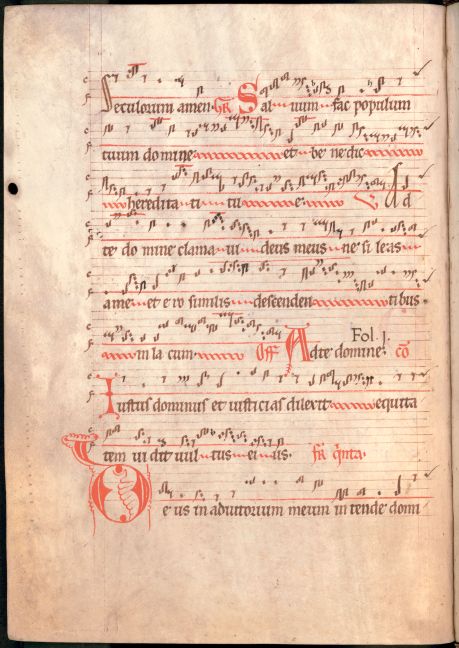 Seculorum amen. GR Saluum fac populum
tuum domine et be ne dic
heredita ti tu e. Ad
te do mine clama ui deus meus ne si leas
ame et e ro similis descenden tibus.
in la cum Off Ad te domine Fol. J. cō
Iustus dominus et iusticias dilexit equita
tem ui dit uul tus ei us.
e us in adiutorium meum in tende domi